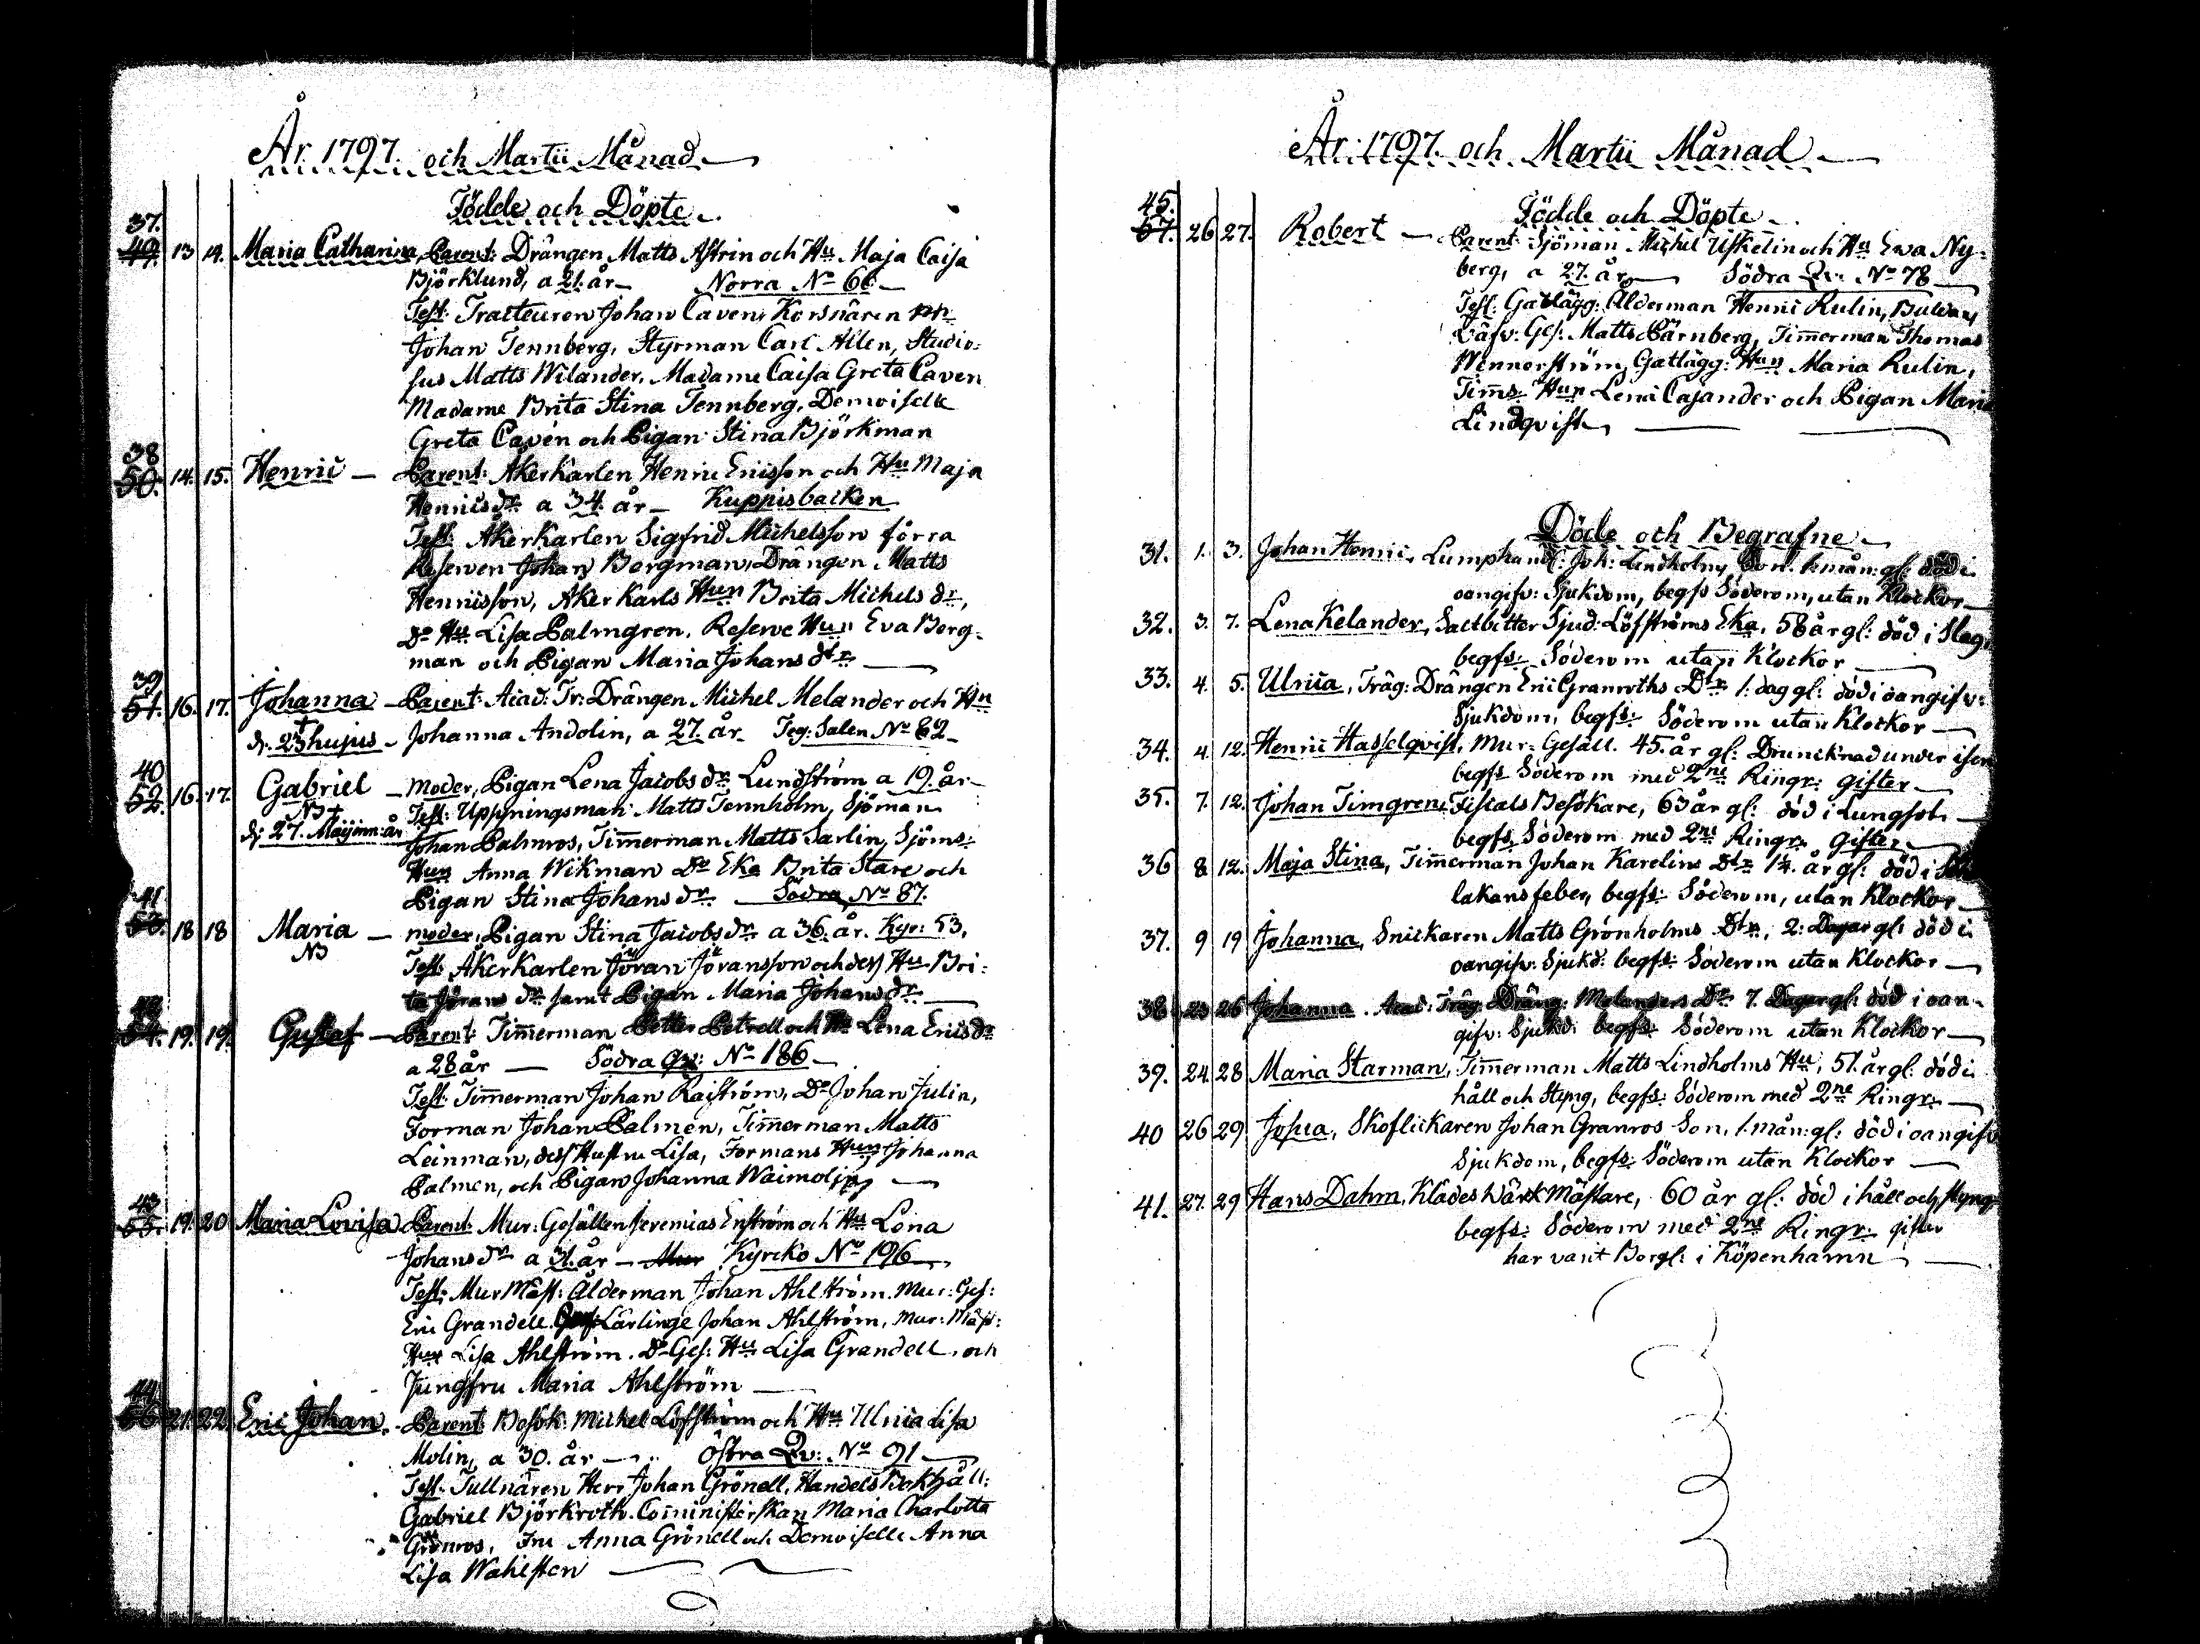 År 1797. och Martii Månad
Födde och Döpte
37.
49. 13 14. Maria Catharina, Parent: Drängen Matts Astrin och Hu Maja Caisa
Björklund, a 21. år Norra No 66
Test: Tracteuren Johan Caven, Konsnären
Johan Tennberg, Styrman Carl Allen, Studio-
sus Matts Wilander, Madame Caisa Greta Caven
Madame Brita Stina Tennberg, Demoiselle
Greta Cavén och Pigan Stina Björkman
38
50. 14. 15. Henric — Parent: Åkerkarlen Henric Ericsson och Hu Maja
Henricsdr a 34 år — Kuppisbacken
Test: Åkerkarlen Sigfrid Michelsson förra
Reserven Johan Borgman, Drängen Matts
Henricsson, Åkerkarls Hun Brita Michelsdr,
Do Hu Lisa Palmgren, Reserve Hun Eva Borg-
man och Pigan Maria Johansdtr
39
51. 16. 17. Johanna — Parent: Acad: Tr: Drängen Michel Melander och Hu
d. 23 hujus — Johanna Andolin, a 27. år Teg: Salen No 62
40
52. 16. 17. Gabriel — Moder, Pigan Lena Jacobsdr Lundström a 19. år
NB † Test: Uppsyningsman Matts Tennholm, Sjöman
d. 27. Maij inn: år Johan Palmros, Timmerman Matts Sarlin, Sjöms:
Hun Anna Wikman Do Eka Brita Stare och
Pigan Stina Johansdr Södra No 87.
41
53. 18 18 Maria — moder, Pigan Stina Jacobsdr a 36. år. Kyr: 53,
NB Test: Åkerkarlen Jöran Jöransson och dess Hu Bri-
ta Jöransdr samt Pigan Maria Johansdr
42
54. 19. 19. Gustaf — Parent: Timmerman Petter Petrell och Hu Lena Ericsdr
a 28 år — Södra Qv: No 186
Test: Timmerman Johan Raiström, Do Johan Julin,
Forman Johan Palmen, Timmerman Matts
Leinman, dess Hustru Lisa, Formans Hun Johanna
Palmen, och Pigan Johanna
43
55. 19. 20 Maria Lovisa Parent: Mur: Gesällen Jeremias Enström och Hu Lena
Johansdr a 31. år — Mur Kyrcko No 196
Test: Mur Mäst: Ålderman Johan Ahlström. Mur: Ges:
Eric Grandell. Lärlinge Johan Ahlström, Mur: Mäst:
Hun Lisa Ahlström. Do Ges: Hu Lisa Grandell. och
Jungfru Maria Ahlström
44
56 21. 22. Eric Johan. Parent: Besök: Michel Löfström och Hu Ulrica Lisa
Molin, a 30. år — Östra Qv: No 91
Test: Tullnären Herr Johan Grönell, Handels Bokhåll:
Gabriel Björkroth. Comministerskan Maria Charlotta
Grönros, Fru Anna Grönell och Demoiselle Anna
Lisa Wahlsten
År 1797. och Martii Månad
Födde och Döpte
45.
57. 26 27. Robert — Parent: Sjöman Michel Uskelin och Hu Ewa Ny-
berg, a 27. år Södra Qv: No 78
Test: Gatlägg: Ålderman Henric Rulin,
Ges: Matts Pärnberg, Timmerman Thomas
Wennerström, Gatlägg: Hun Maria Rulin,
Timms Hun Lena Cajander och Pigan Maria
Lindqvist
Döde och Begrafne
31. 1. 3. Johan Henric, Lumphandl: Joh: Lindholms Son. 1. mån: gl: död i
oangifv: Sjukdom, begfs Söderom, utan Klockor
32. 3. 7. Lena Kelander, Saltbitter Sjud: Löfströms Eka, 58 år gl: död i Slag,
begfs: Söderom utan Klockor
33. 4. 5. Ulrica, Träg: Drängen Eric Granroths Dtr 1: dag gl: död i oangifv:
Sjukdom, begfs: Söderom utan Klockor
34. 4. 12. Henric Hasselqvist, Mur: Gesäll. 45. år gl: Druncknad under isen
begfs Söderom med 2ne Ringr: gifter
35. 7. 12. Johan Timgren, Fiscals Besökare, 63 år gl: död i Lungsot
begfs Söderom med 2ne Ringr: Gifter
36 8 12. Maja Stina, Timmerman Johan Karelins Dtr 1¼. år gl: död i
lakansfeber, begfs: Söderom, utan Klockor
37. 9 19 Johanna, Snickaren Matts Grönholms Dtr, 2: Dagar gl: död i
oangifv: Sjukd: begfs: Söderom utan Klockor
38 23 26 Johanna. Acad: Träg: Dräng: Melanders Dr 7. Dagar gl: död i oan-
gifv: Sjukd: begfs: Söderom utan Klockor
39. 24 28 Maria Starman, Timmerman Matts Lindholms Hu, 51. år gl: död i
håll och Styng, begfs: Söderom med 2ne Ringr:
40 26 29 Josua, Skoflickaren Johan Granros Son, 1. mån: gl: död i oangifv
Sjukdom, begfs: Söderom utan Klockor
41. 27. 29 Hans Dahm, Klädes Wärk Mästare, 60 år gl: död i håll och styng
begfs: Söderom med 2ne Ringr: gifter
har varit Borgl: i Köpenhamn